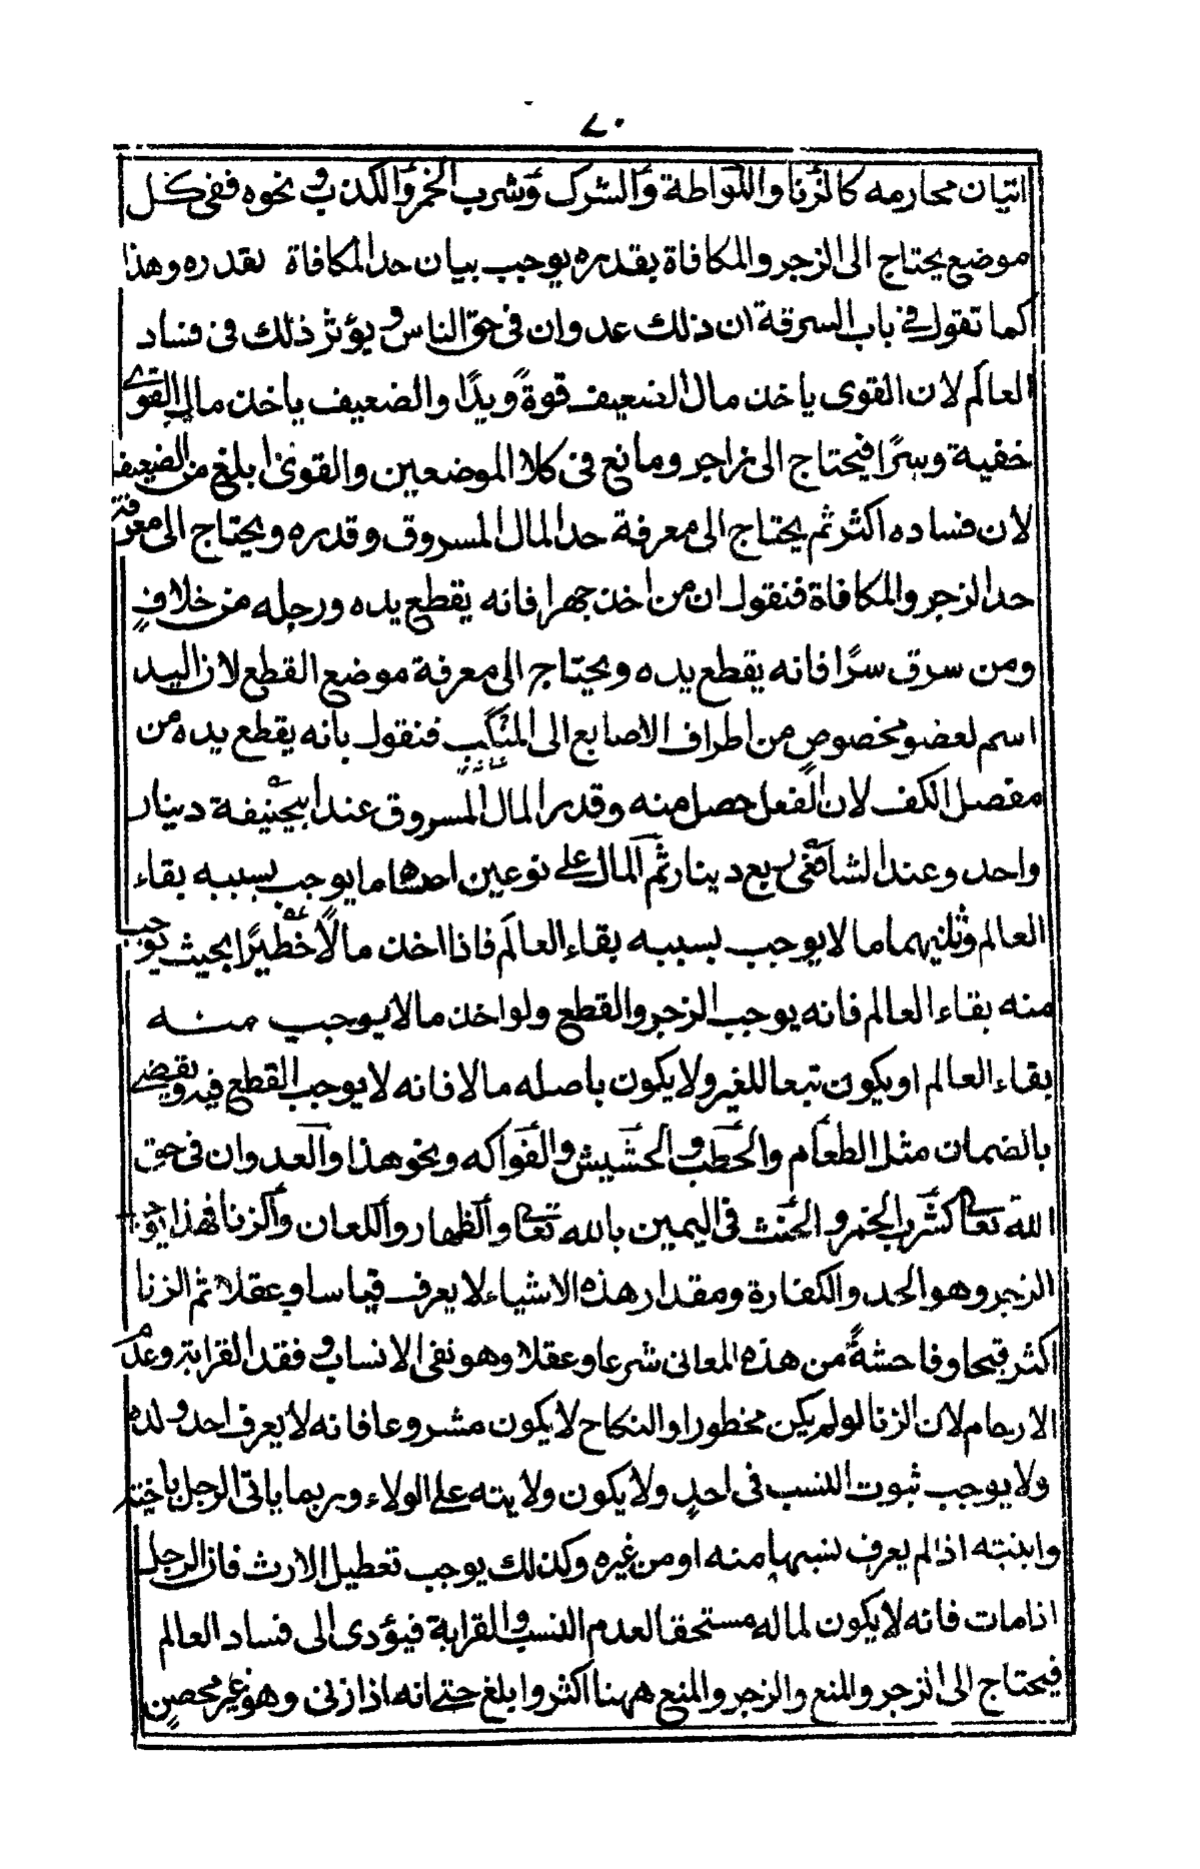 ٧٠
اتيان محارمه كالزنا واللواطة والشرك وشرب الخمر والكذب ونحوه ففى كل
موضع يحتاج الى الزجر والمكافاة بقدره يوجب بيان حد المكافاة بقدره وهذا
كما تقول فى باب السرقة ان ذلك عدوان فى حق الناس ويؤثر ذلك فى فساد
العالم لان القوى ياخذ مال الضعيف قوةً ويدًا والضعيف ياخذ مال القوى
خفية وسرًا فيحتاج الى زاجر ومانع فى كلا الموضعين والقوى ابلغ من الضعيف
لان فساده اكثر ثم يحتاج الى معرفة حد المال المسروق وقدره ويحتاج الى معرفة
حد الزجر والمكافاة فنقول ان من اخذ جهرا فانه يقطع يده ورجله من خلافٍ
ومن سرق سرًا فانه يقطع يده ويحتاج الى معرفة موضع القطع لان اليد
اسم لعضو مخصوصٍ من اطراف الاصابع الى المنكب فنقول بانه يقطع يده من
مفصل الكف لان الفعل حصل منه وقدر المال المسروق عند ابيحنيفة دينار
واحد وعند الشافعى ربع دينار ثم المال على نوعين احدهما ما يوجب بسببه بقاء
العالم وثانيهما ما لا يوجب بسببه بقاء العالم فاذا اخذ مالًا خطيرًا بحيث يوجب
منه بقاء العالم فانه يوجب الزجر والقطع ولو اخذ ما لا يوجب منه
بقاء العالم او يكون تبعا للغير ولا يكون باصله مالا فانه لا يوجب القطع فيه ويقضى
بالضمان مثل الطعام والحطب والحشيش والفواكه ونحو هذا والعدوان فى حق
الله تعالى كشرب الخمر والحنث فى اليمين بالله تعالى والظهار واللعان والزنا فهذا يوجب
الزجر وهو الحد والكفارة ومقدار هذه الاشياء لا يعرف قياسا وعقلا ثم الزنا
اكثر قبحا وفاحشةً من هذه المعانى شرعا وعقلا وهو نفى الانساب وفقد القرابة وعدم
الارحام لان الزنا لو لم يكن محظورا والنكاح لا يكون مشروعا فانه لا يعرف احد ولده
ولا يوجب ثبوت النسب فى احدٍ ولا يكون ولايته على الولاء وربما ياتى الرجل باخته
وابنته اذا لم يعرف نسبها منه او من غيره وكذلك يوجب تعطيل الارث فان الرجل
اذا مات فانه لا يكون لماله مستحقا لعدم النسب والقرابة فيؤدى الى فساد العالم
فيحتاج الى الزجر والمنع والزجر والمنع ههنا اكثر وابلغ حتى انه اذا زنى وهو غير محصنٍ